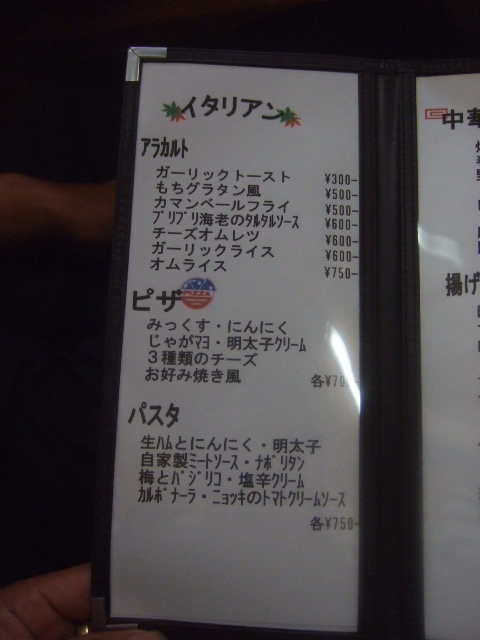 イタリアン
アラカルト
ガーリックトースト ¥300-
もちグラタン風 ¥500-
カマンベールフライ ¥500-
プリプリ海老のタルタルソース ¥600-
チーズオムレツ ¥600-
ガーリックライス ¥600-
オムライス ¥750-
ピザ PIZZA
みっくす・にんにく
じゃがマヨ・明太子クリーム
3種類のチーズ
お好み焼き風 各¥70
パスタ
生ハムとにんにく・明太子
自家製ミートソース・ナポリタン
梅とバジリコ・塩辛クリーム
カルボナーラ・ニョッキのトマトクリームソース
各¥750-
中華
揚げ